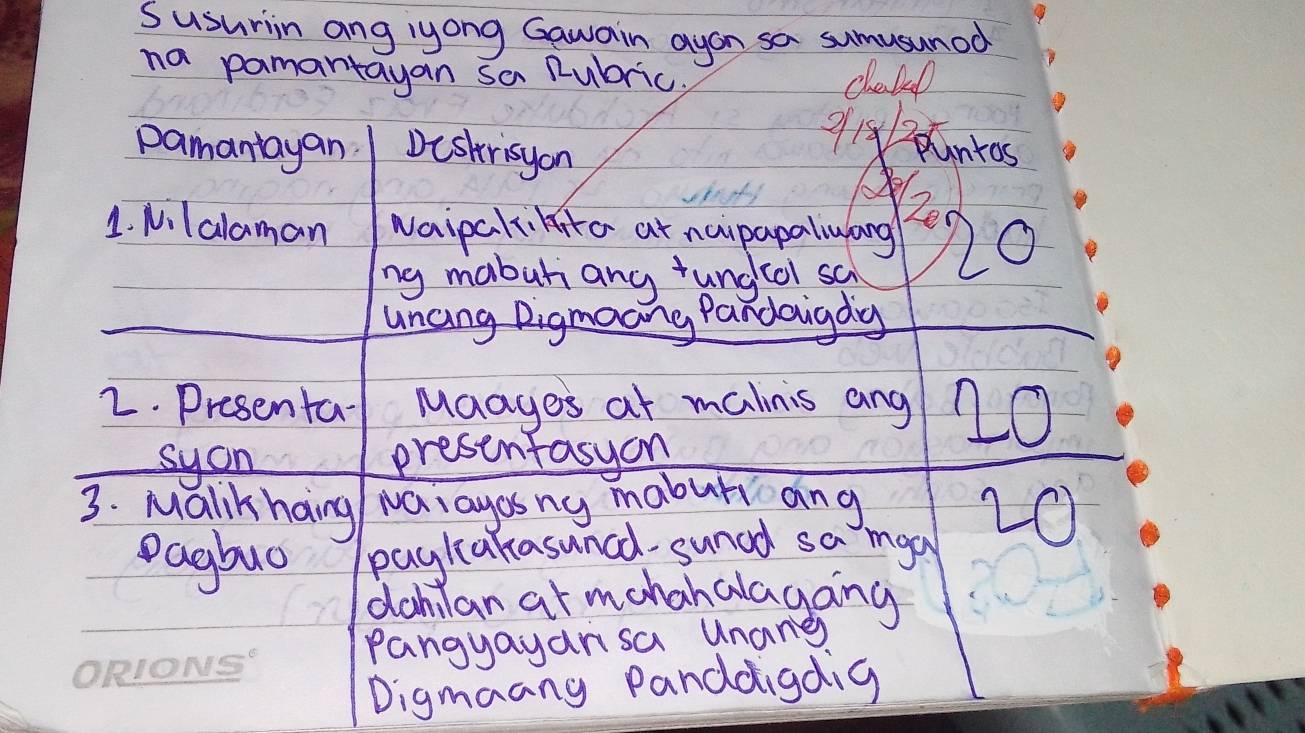 Susuriin ang iyong Gawain ayon sa sumusunod
na pamantayan sa Rubric.
Pamantayan Deskrisyon Puntos
1. Nilalaman Naipakikita at naipapaliwang 20
ng mabuti ang tungkol sa
unang Digmaang Pandaigdig
2. Presenta- Maayos at malinis ang 10
syon presentasyon
3. Malikhaing Naiayos ng mabuti ang 20
Pagbuo pagkakasunod-sunod sa mga
dahilan at mahahalagang
Pangyayari sa Unang
Digmaang Pandaigdig
ORIONS